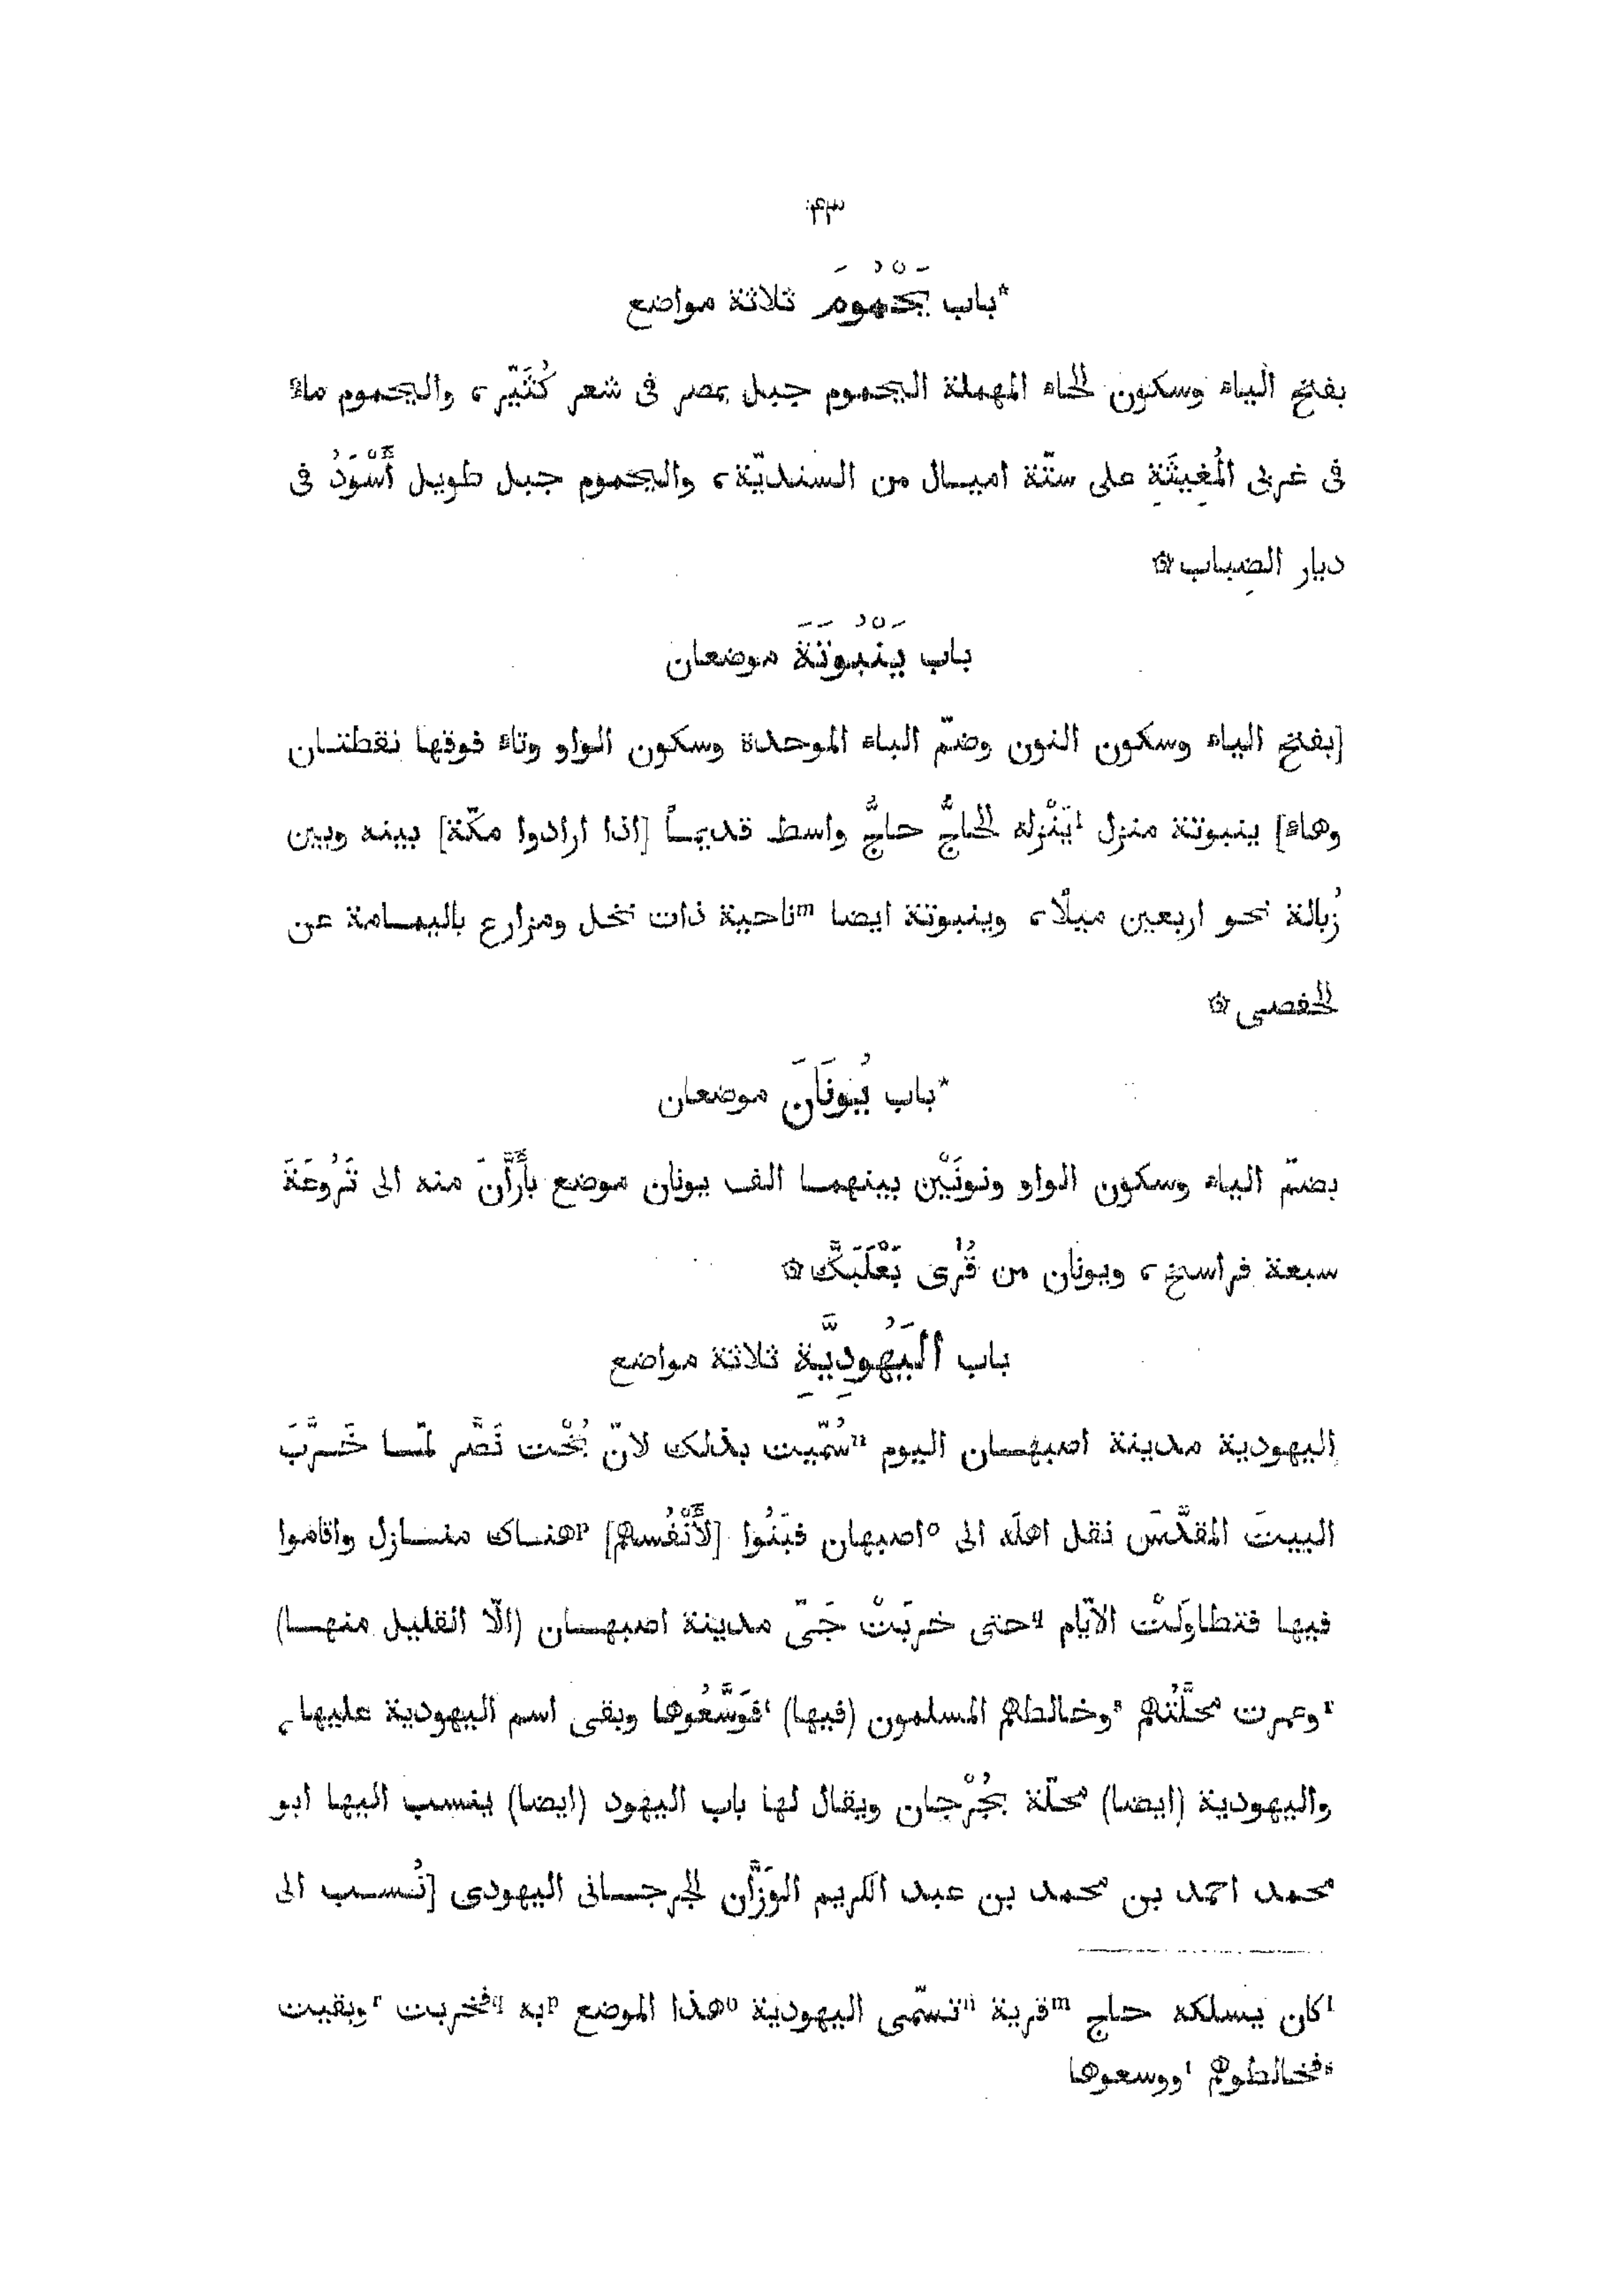 *باب يَحْمُومَ ثلاثة مواضع
بفتح الياء وسكون الحاء المهملة اليحموم جبل بمصر فى شعر كُثَيّر، واليحموم ماءٌ
فى غربى المُغِيثَةِ على ستّة اميـال من السنديّة، واليحموم جبل طويل أَسْوَدُ فى
ديار الضِباب۞
باب يَنْبُوتَةَ موضعان
[بفتح الياء وسكون النون وضمّ الباء الموحدة وسكون الواو وتاء فوقها نقطتـان
وهاء] ينبوتة منزل lيَنْزله الحاجُّ حاجُّ واسط قديمًا [اذا ارادوا مكّة] بينه وبين
زُبالة نحو اربعين ميلًا، وينبوتة ايضا mناحية ذات نخل ومزارع باليمـامة عن
الحفصى۞
*باب يُونَانَ موضعان
بضمّ الياء وسكون الواو ونونَيْن بينهمـا الف يونان موضع بأَرَّانَ منه الى بَرْذعَةَ
سبعة فراسخ، ويونان من قُرْى بَعْلَبَكَّ۞
باب اليَهُودِيَّةِ ثلاثة مواضع
اليهودية مدينة اصبهـان اليوم nسُمّيت بذلك لانّ بُخْت نَصَّر لمّـا خَـرَّبَ
البيتَ المقدَّسَ نقل اهلَه الى oاصبهان فبَنُوا [لأَنْفُسهم] pهنـاك منـازل واقاموا
فيها فتطاوَلَتْ الايّام qحتى خربَتْ جَىّ مدينة اصبهـان (الّا القليل منهـا)
rوعمرت محلَّتُهم sوخالطهم المسلمون (فيها) tفوَسَّعُوها وبقى اسم اليهودية عليها،
واليهودية (ايضا) محلّة بجُرْجان ويقال لها باب اليهود (ايضا) ينسب اليها ابو
محمد احمد بن محمد بن عبد الكريم الوَزَّان الجرجـانى اليهودى [نُسـب الى
lكان يسلكه حاج mقرية nتسّمى اليهودية oهذا الموضع pبه qفخربت rوبقيت
sفخالطوهم tووسعوها